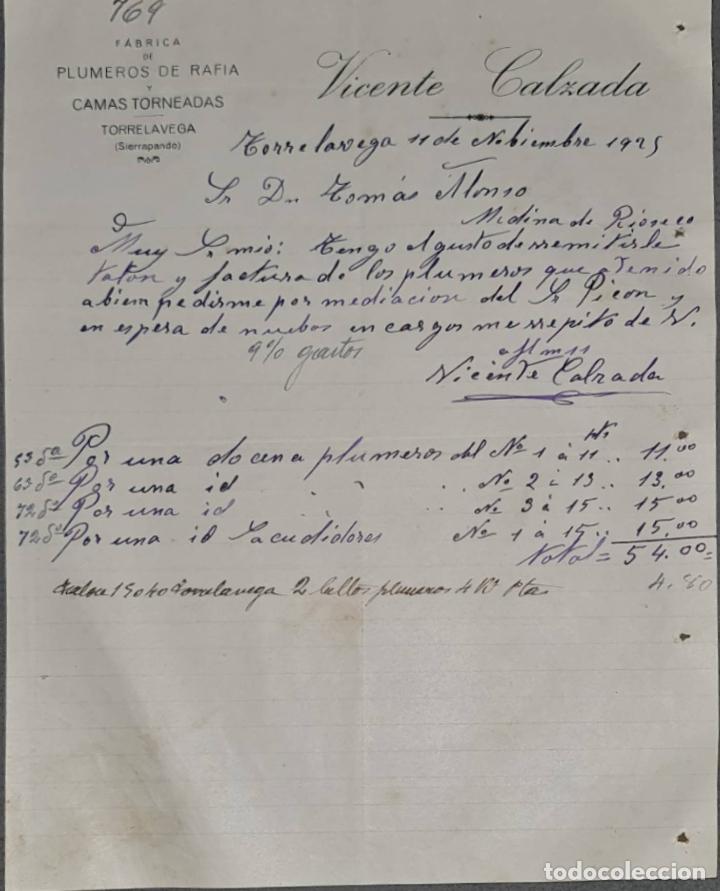 769
FÁBRICA
DE
PLUMEROS DE RAFIA
Y
CAMAS TORNEADAS
TORRELAVEGA
(Sierrapando)
Vicente Calzada
Torrelavega 11 de Nobiembre 1925
Sr Dn Tomás Alonso
Medina de Rioseco
Muy Sr mio: Tengo el gusto de rremitirle
talon y factura de los plumeros que a tenido
a bien pedirme por mediacion del Sr Picon y
en espera de nuebos encargos me rrepito de V.
9% gastos
Vicente Calzada
Por una docena plumeros del Nº 1 á 11.. 11.00
Por una id Nº 2 á 13.. 13.00
Por una id Nº 3 á 15.. 15.00
Por una id Sacudidores Nº 1 á 15.. 15.00
Total = 54.00=
Torrelavega 2 plumeros Ptas
todocoleccion.net